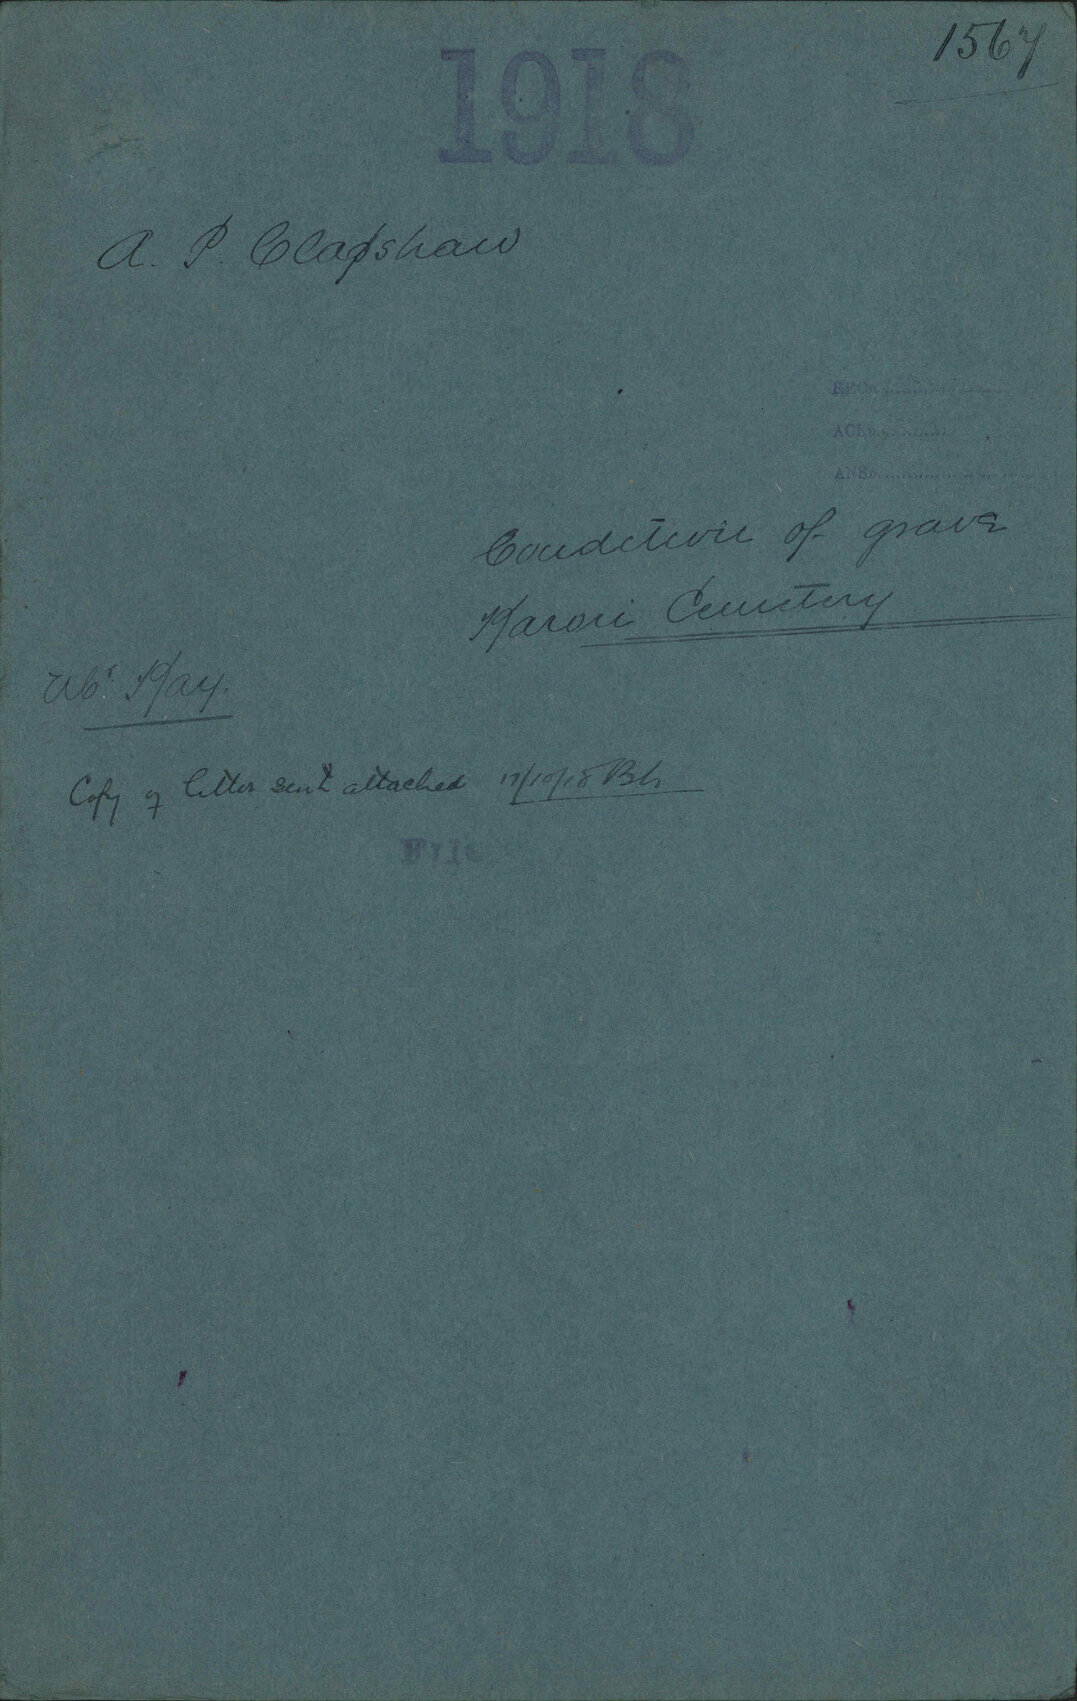 1567
1918
A. P. Clapshaw
REC
ACK
ANS
Condition of grave
Karori Cemetery
Mr Kay.
Copy of letter sent attached 17/10/18
File